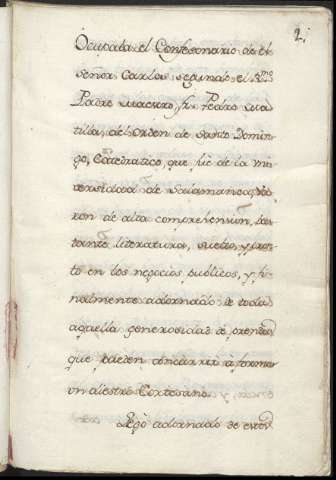 2.
Ocupaba el Confesonario de el
señor Carlos segundo el Rmo
Padre Maestro, fr. Pedro Ma-
tilla, del Orden de Santo Domin-
go, Cathedratico, que fue de la uni-
versidad de Salamanca, Va-
ron de alta comprehension, bas-
tante literatura, suelto, y pron-
to en los negocios publicos, y fi-
nalmente adornado de toda
aquella generosidad de prendas
que pueden concurrir à formar
un diestro Cortesano.
adornado de estas